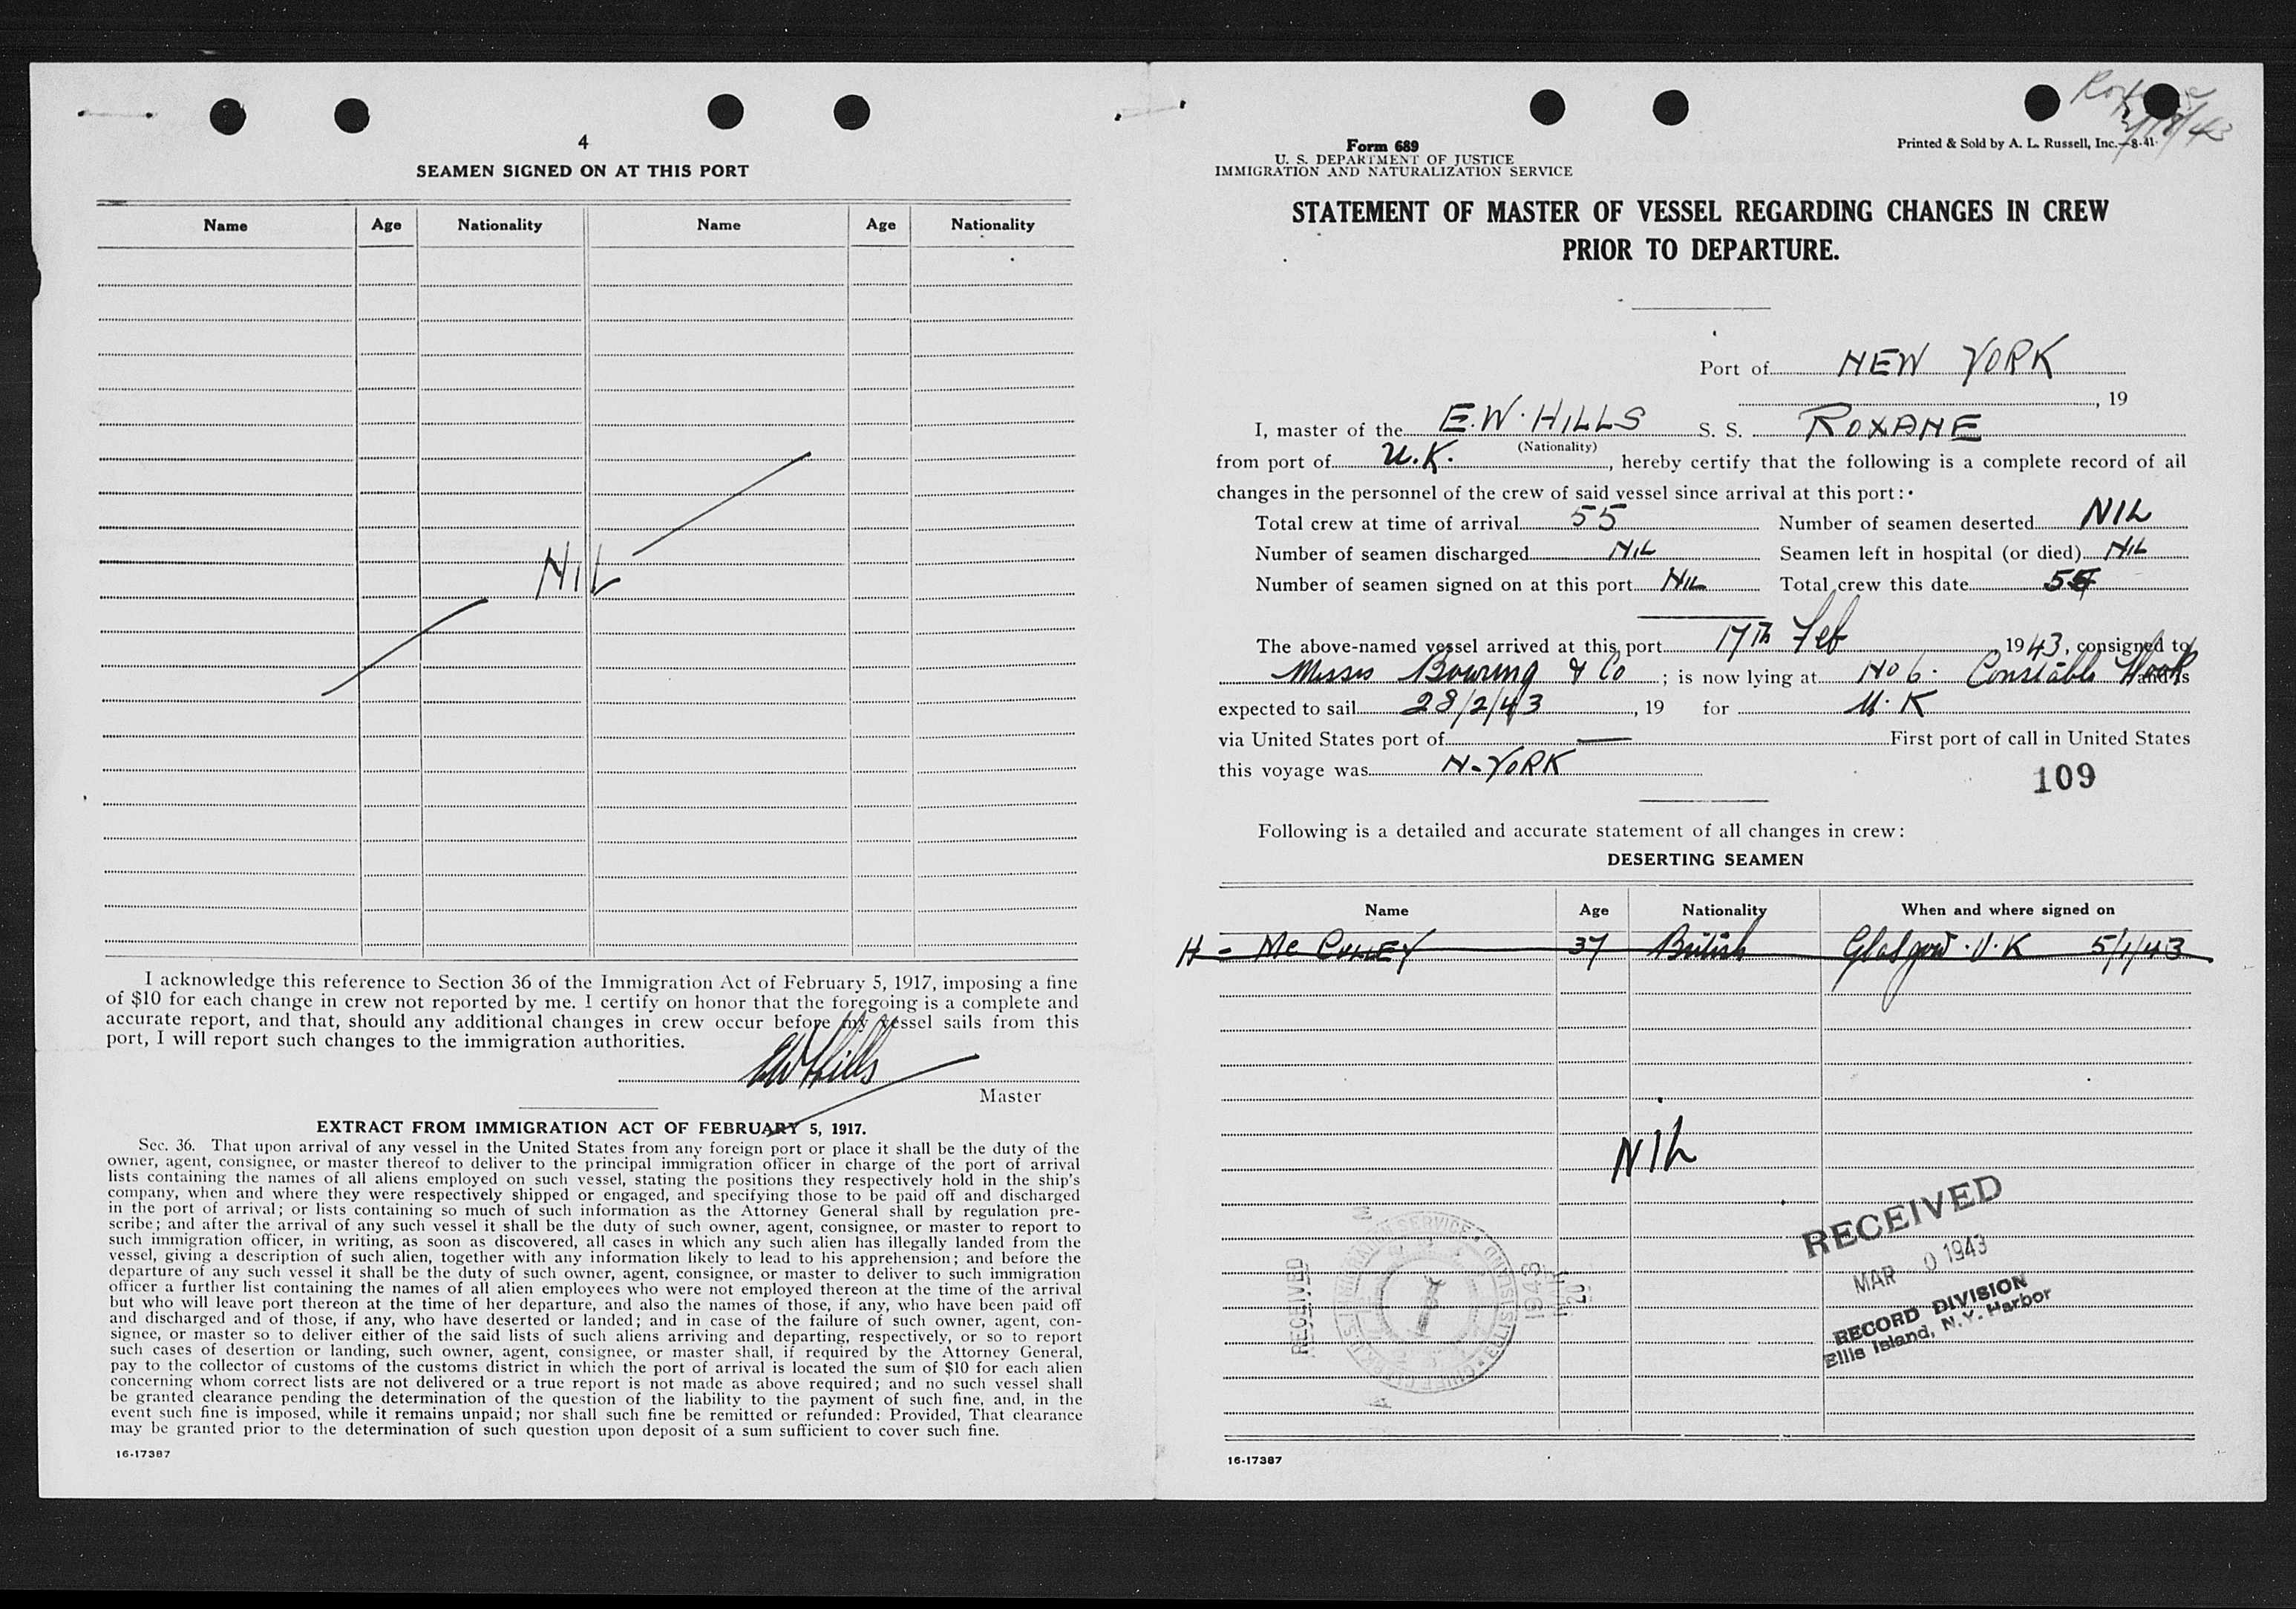 4
SEAMEN SIGNED ON AT THIS PORT
Name Age Nationality Name Age Nationality
NIL
I acknowledge this reference to Section 36 of the Immigration Act of February 5, 1917, imposing a fine
of $10 for each change in crew not reported by me. I certify on honor that the foregoing is a complete and
accurate report, and that, should any additional changes in crew occur before my vessel sails from this
port, I will report such changes to the immigration authorities.
EW Hills
Master
EXTRACT FROM IMMIGRATION ACT OF FEBRUARY 5, 1917.
Sec. 36. That upon arrival of any vessel in the United States from any foreign port or place it shall be the duty of the
owner, agent, consignee, or master thereof to deliver to the principal immigration officer in charge of the port of arrival
lists containing the names of all aliens employed on such vessel, stating the positions they respectively hold in the ship's
company, when and where they were respectively shipped or engaged, and specifying those to be paid off and discharged
in the port of arrival; or lists containing so much of such information as the Attorney General shall by regulation pre-
scribe; and after the arrival of any such vessel it shall be the duty of such owner, agent, consignee, or master to report to
such immigration officer, in writing, as soon as discovered, all cases in which any such alien has illegally landed from the
vessel, giving a description of such alien, together with any information likely to lead to his apprehension; and before the
departure of any such vessel it shall be the duty of such owner, agent, consignee, or master to deliver to such immigration
officer a further list containing the names of all alien employees who were not employed thereon at the time of the arrival
but who will leave port thereon at the time of her departure, and also the names of those, if any, who have been paid off
and discharged and of those, if any, who have deserted or landed; and in case of the failure of such owner, agent, con-
signee, or master so to deliver either of the said lists of such aliens arriving and departing, respectively, or so to report
such cases of desertion or landing, such owner, agent, consignee, or master shall, if required by the Attorney General,
pay to the collector of customs of the customs district in which the port of arrival is located the sum of $10 for each alien
concerning whom correct lists are not delivered or a true report is not made as above required; and no such vessel shall
be granted clearance pending the determination of the question of the liability to the payment of such fine, and, in the
event such fine is imposed, while it remains unpaid; nor shall such fine be remitted or refunded: Provided, That clearance
may be granted prior to the determination of such question upon deposit of a sum sufficient to cover such fine.
16-17387
Form 689
U. S. DEPARTMENT OF JUSTICE
IMMIGRATION AND NATURALIZATION SERVICE
Printed & Sold by A. L. Russell, Inc.—8-41
STATEMENT OF MASTER OF VESSEL REGARDING CHANGES IN CREW
PRIOR TO DEPARTURE.
Port of NEW YORK
, 19
I, master of the E.W. HILLS S. S. ROXANE
(Nationality)
from port of U.K. , hereby certify that the following is a complete record of all
changes in the personnel of the crew of said vessel since arrival at this port:
Total crew at time of arrival 55 Number of seamen deserted NIL
Number of seamen discharged NIL Seamen left in hospital (or died) NIL
Number of seamen signed on at this port NIL Total crew this date 55
The above-named vessel arrived at this port 17th Feb 1943, consigned to
Messrs Bowring & Co ; is now lying at No 6. Constable Hook and is
expected to sail 28/2/43 , 19 for U.K
via United States port of — First port of call in United States
this voyage was N-YORK
109
Following is a detailed and accurate statement of all changes in crew:
DESERTING SEAMEN
Name Age Nationality When and where signed on
37 British Glasgow . U.K 5/1/43
NIL
RECEIVED
MAR 1943
RECORD DIVISION
Ellis Island, N.Y. Harbor
RECEIVED
1943
16-17387